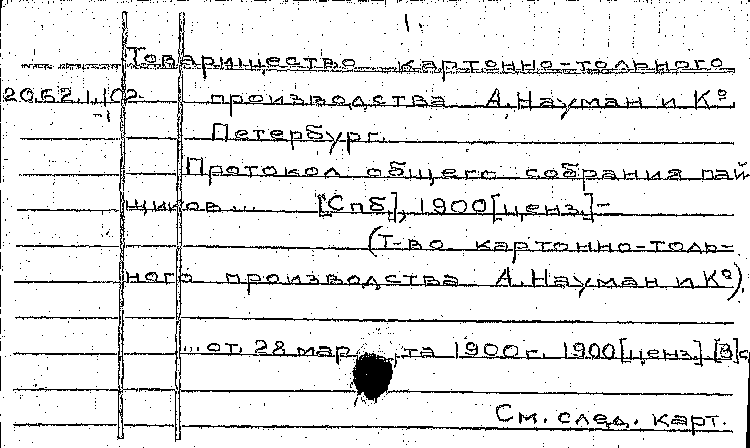 1.
Товарищество картонно-тольного
20.52.1.102 производства А. Науман и К⁰
-1
Петербург.
Протокол общего собрания пай
щиков... [Спб.], 1900[ценз.]-
(Т-во картонно-толь-
ного производства А. Науман и К⁰).
...от. 28 мар та 1900г. 1900[ценз.] [3]с
См. след. карт.